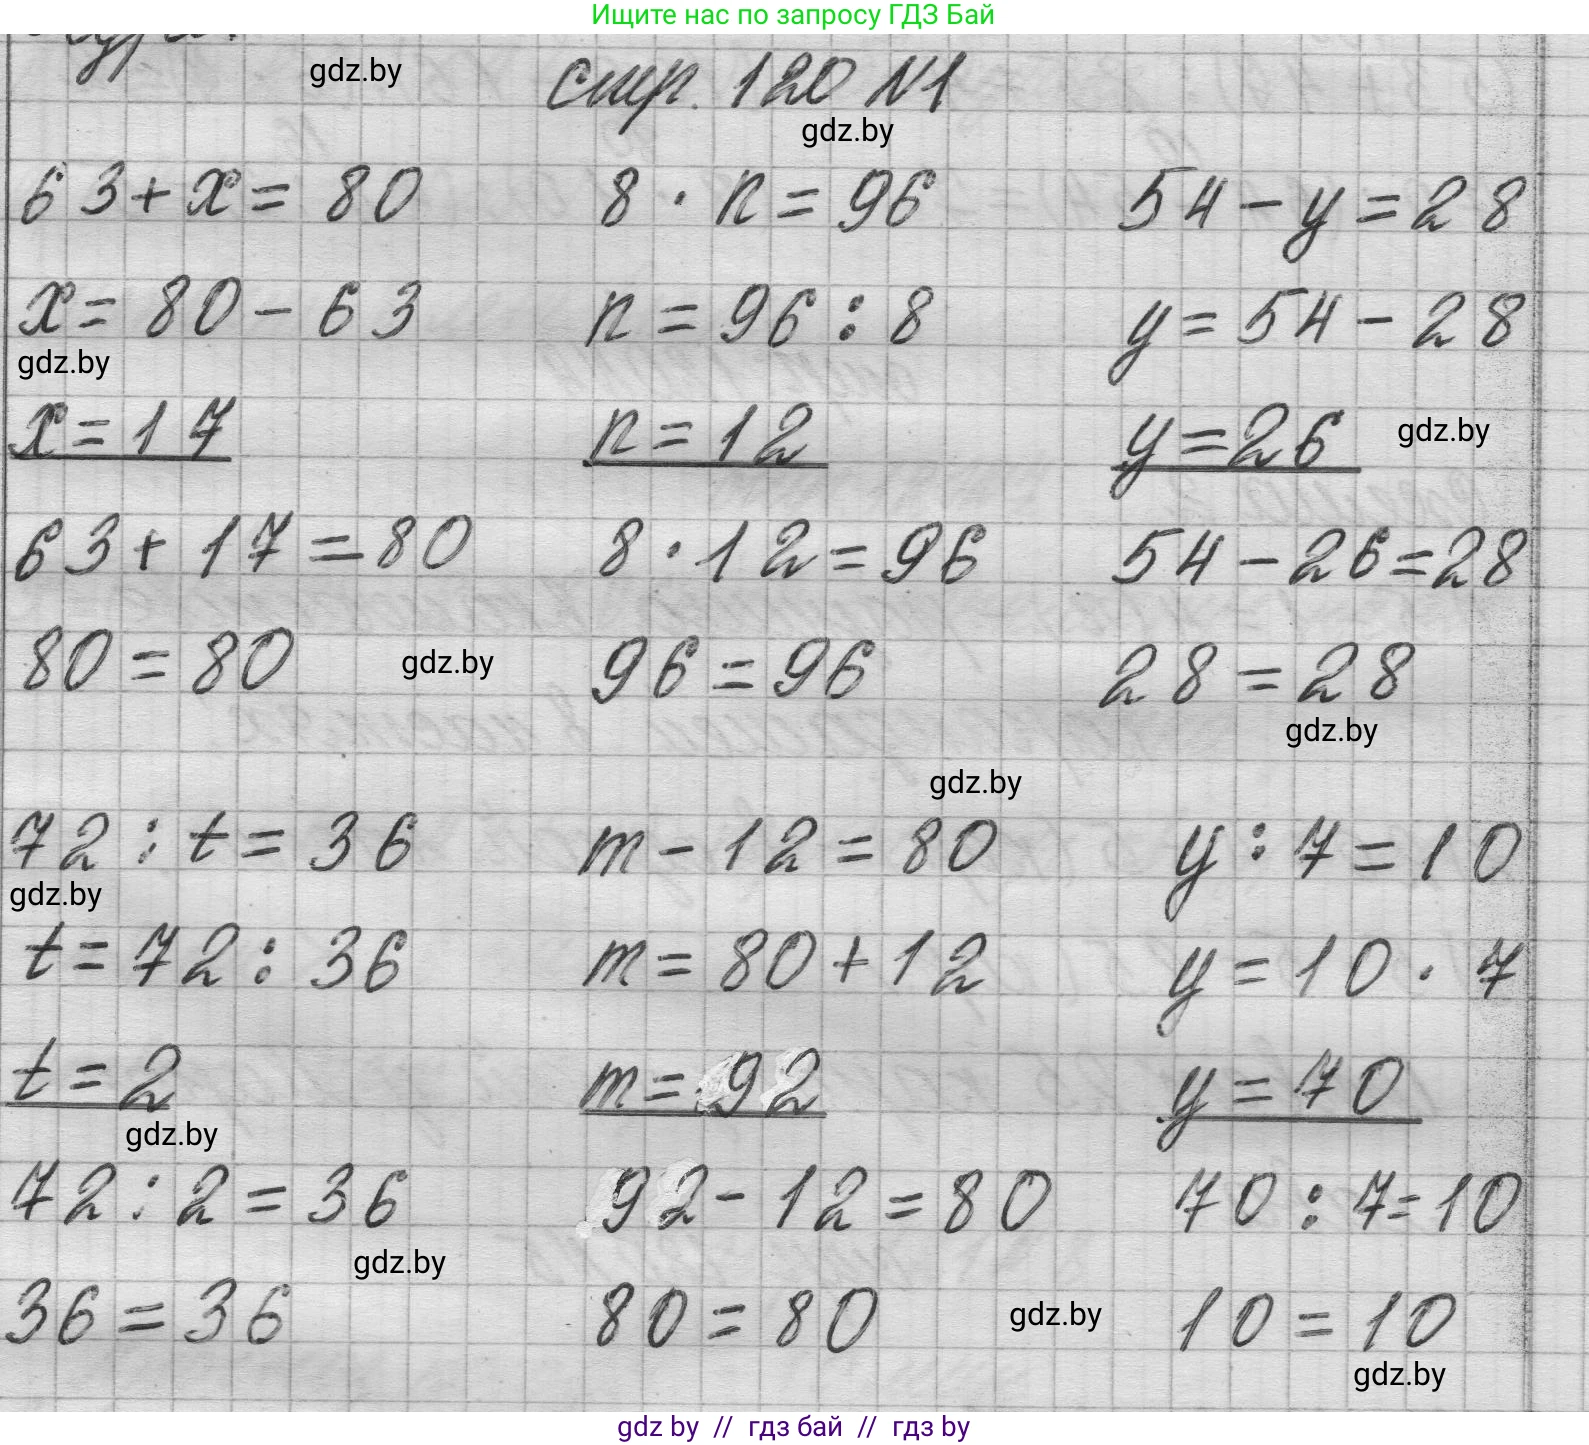 Ищите нас по запросу ГДЗ Бай
gdz.by
стр. 120 №1
gdz.by
63+x=80 8·n=96 54-y=28
x=80-63 n=96:8 y=54-28
gdz.by
x=17 n=12 y=26 gdz.by
63+17=80 8·12=96 54-26=28
80=80 gdz.by 96=96 28=28
gdz.by
gdz.by
72:t=36 m-12=80 y:7=10
gdz.by
t=72:36 m=80+12 y=10·7
t=2 m=92 y=70
gdz.by
72:2=36 92-12=80 70:7=10
gdz.by
36=36 80=80 gdz.by 10=10
gdz.by
gdz by // гдз бай // гдз by